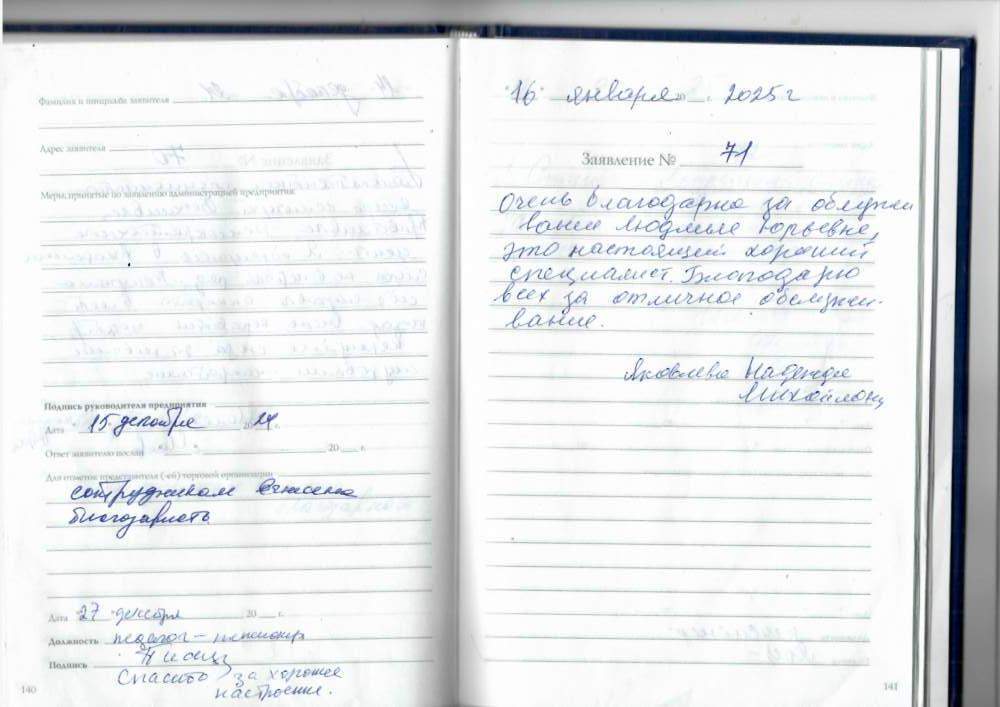 Фамилия и инициалы заявителя
Адрес заявителя
Меры, принятые по заявлению администрацией предприятия:
Подпись руководителя предприятия
Дата 15 декабря 2024
Ответ заявителю послан 20 г.
Для отметок представителя (-ей) торговой организации
сотрудникам
благодарность
Дата 27 декабря 20 г.
Должность педагог - пенсионер
Подпись
Спасибо за хорошее
настроение.
140
"16" января 20 г. 2025 г
Заявление № 71
Очень благодарна за обслужи
вание Людмиле Юрьевне,
это настоящий хороший
специалист. Благодарю
всех за отличное обслужи-
вание.
Яковлева Надежда
Михайловна
141